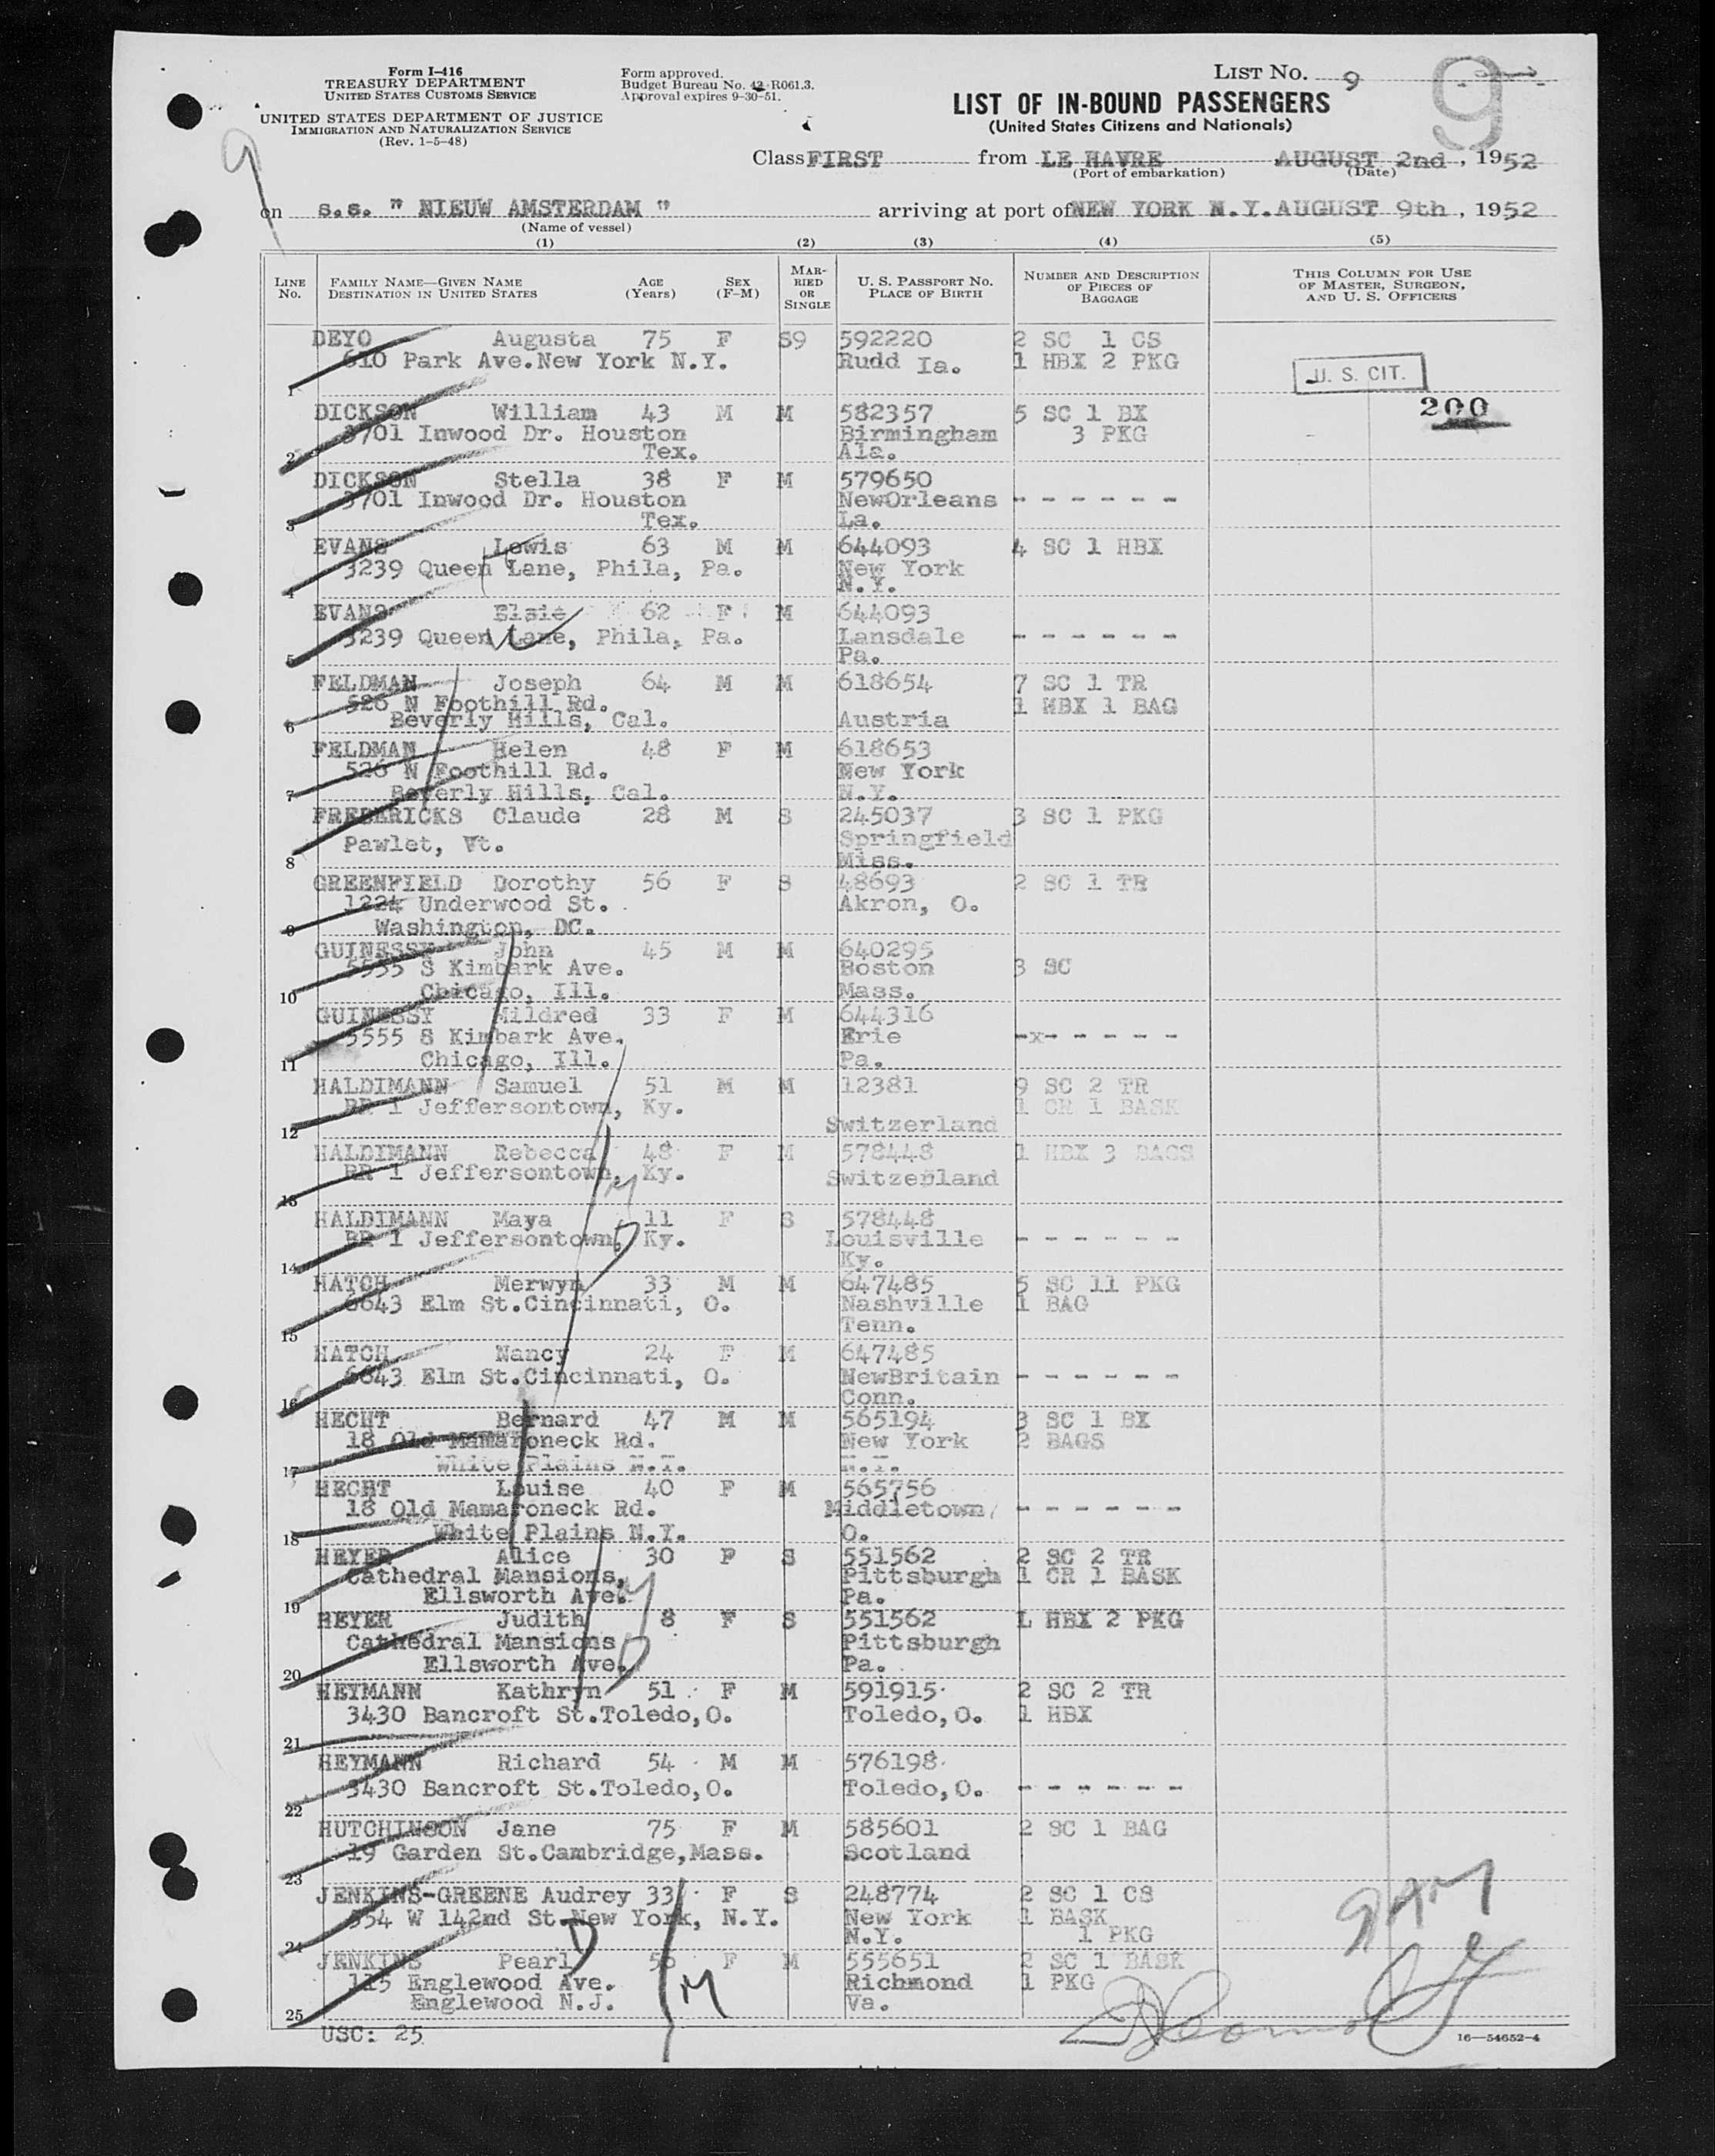 Form I-416
TREASURY DEPARTMENT
UNITED STATES CUSTOMS SERVICE
UNITED STATES DEPARTMENT OF JUSTICE
IMMIGRATION AND NATURALIZATION SERVICE
(Rev. 1-5-48)
Form approved.
Budget Bureau No. 43-R061.3.
Approval expires 9-30-51.
LIST NO. 9
9
9
LIST OF IN-BOUND PASSENGERS
(United States Citizens and Nationals)
Class FIRST from LE HAVRE AUGUST 2nd, 1952
(Port of embarkation) (Date)
on s.s. " NIEUW AMSTERDAM " arriving at port of NEW YORK N.Y. AUGUST 9th, 1952
(Name of vessel)
(1) (2) (3) (4) (5)
LINE No. FAMILY NAME—GIVEN NAME DESTINATION IN UNITED STATES AGE (Years) SEX (F-M) MARRIED OR SINGLE U. S. PASSPORT NO. PLACE OF BIRTH NUMBER AND DESCRIPTION OF PIECES OF BAGGAGE THIS COLUMN FOR USE OF MASTER, SURGEON, AND U. S. OFFICERS
DEYO Augusta 75 F S9 592220 2 SC 1 CS
610 Park Ave.New York N.Y. Rudd Ia. 1 HBX 2 PKG
U. S. CIT.
1
200
DICKSON William 43 M M 582357 5 SC 1 BX
3701 Inwood Dr. Houston Birmingham 3 PKG
2 Tex. Ala.
DICKSON Stella 38 F M 579650
3701 Inwood Dr. Houston NewOrleans - - - - - -
3 Tex. La.
EVANS Lewis 63 M M 644093 4 SC 1 HBX
3239 Queen Lane, Phila, Pa. New York
4 N.Y.
EVANS Elsie 62 F M 644093
3239 Queen Lane, Phila, Pa. Lansdale - - - - - -
5 Pa.
FELDMAN Joseph 64 M M 618654 7 SC 1 TR
526 N Foothill Rd. 1 HBX 1 BAG
6 Beverly Hills, Cal. Austria
FELDMAN Helen 48 F M 618653
526 N Foothill Rd. New York
7 Beverly Hills, Cal. N.Y.
FREDERICKS Claude 28 M S 245037 3 SC 1 PKG
Pawlet, Vt. Springfield
8 Miss.
GREENFIELD Dorothy 56 F S 48693 2 SC 1 TR
1224 Underwood St. Akron, O.
9 Washington, DC.
GUINESSY John 45 M M 640295
5555 S Kimbark Ave. Boston 3 SC
10 Chicago, Ill. Mass.
GUINESSY Mildred 33 F M 644316
5555 S Kimbark Ave. Erie -x- - - - -
11 Chicago, Ill. Pa.
HALDIMANN Samuel 51 M M 12381 9 SC 2 TR
RR 1 Jeffersontown, Ky. 1 CR 1 BASK
12 Switzerland
HALDIMANN Rebecca 48 F M 578448 1 HBX 3 BAGS
RR 1 Jeffersontown, Ky. Switzerland
13
HALDIMANN Maya 11 F S 578448
RR 1 Jeffersontown, Ky. Louisville - - - - - -
14 Ky.
HATCH Merwyn 33 M M 647485 5 SC 11 PKG
6643 Elm St.Cincinnati, O. Nashville 1 BAG
15 Tenn.
HATCH Nancy 24 F M 647485
6643 Elm St.Cincinnati, O. NewBritain - - - - - -
16 Conn.
HECHT Bernard 47 M M 565194 3 SC 1 BX
18 Old Mamaroneck Rd. New York 2 BAGS
17 White Plains N.Y. N.Y.
HECHT Louise 40 F M 565756
18 Old Mamaroneck Rd. Middletown - - - - - -
18 White Plains N.Y. O.
HEYER Alice 30 F S 551562 2 SC 2 TR
Cathedral Mansions, Pittsburgh 1 CR 1 BASK
19 Ellsworth Ave. Pa.
HEYER Judith 8 F S 551562 1 HBX 2 PKG
Cathedral Mansions Pittsburgh
20 Ellsworth Ave. Pa.
HEYMANN Kathryn 51 F M 591915 2 SC 2 TR
3430 Bancroft St.Toledo,O. Toledo,O. 1 HBX
21
HEYMANN Richard 54 M M 576198
3430 Bancroft St.Toledo,O. Toledo,O. - - - - - -
22
HUTCHINSON Jane 75 F M 585601 2 SC 1 BAG
19 Garden St.Cambridge,Mass. Scotland
23
JENKINS-GREENE Audrey 33 F S 248774 2 SC 1 CS
554 W 142nd St.New York, N.Y. New York 1 BASK
24 N.Y. 1 PKG
JENKINS Pearl 56 F M 555651 2 SC 1 BASK
115 Englewood Ave. Richmond 1 PKG
25 Englewood N.J. Va.
USC: 25
16—54652-4